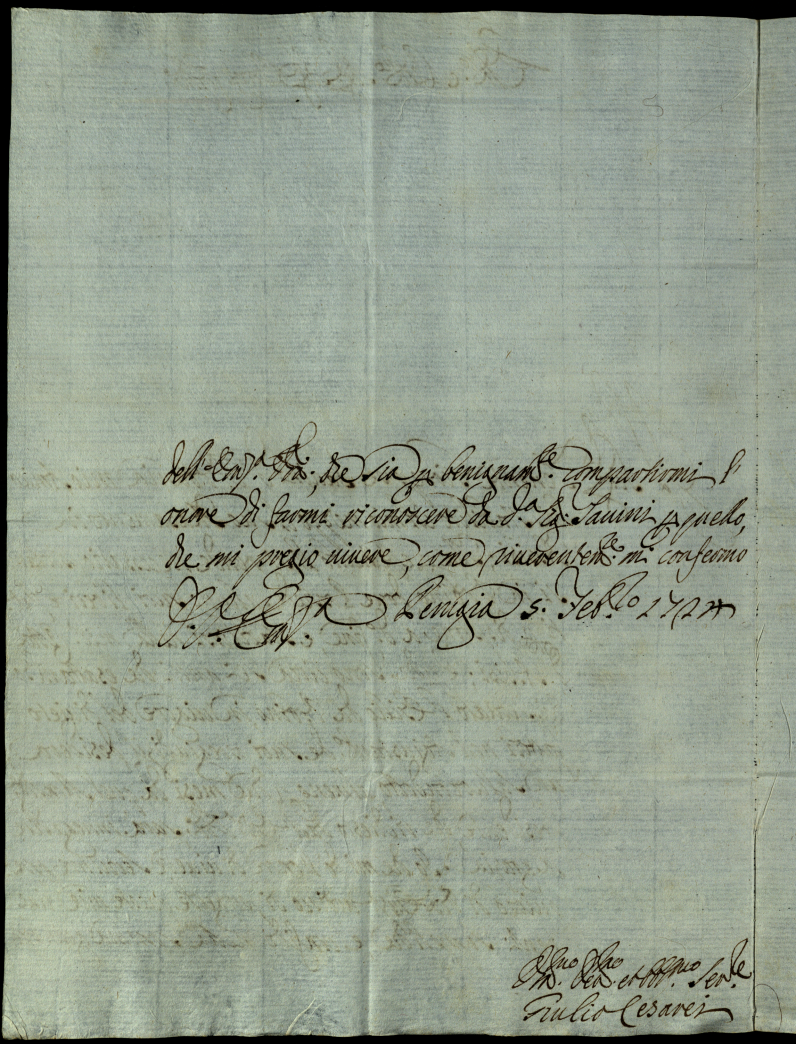 dell'Em.za V.ra, che sia p. benignam.te compartirmi l'
onore di farmi riconoscere da d.a Sig. Savini p quello,
che mi pregio vivere, come riverentem.te mi confermo
Perugia 5. Feb.ro 1724
Um.mo Dev. et Obb.mo Ser.re
Giulio Cesarei